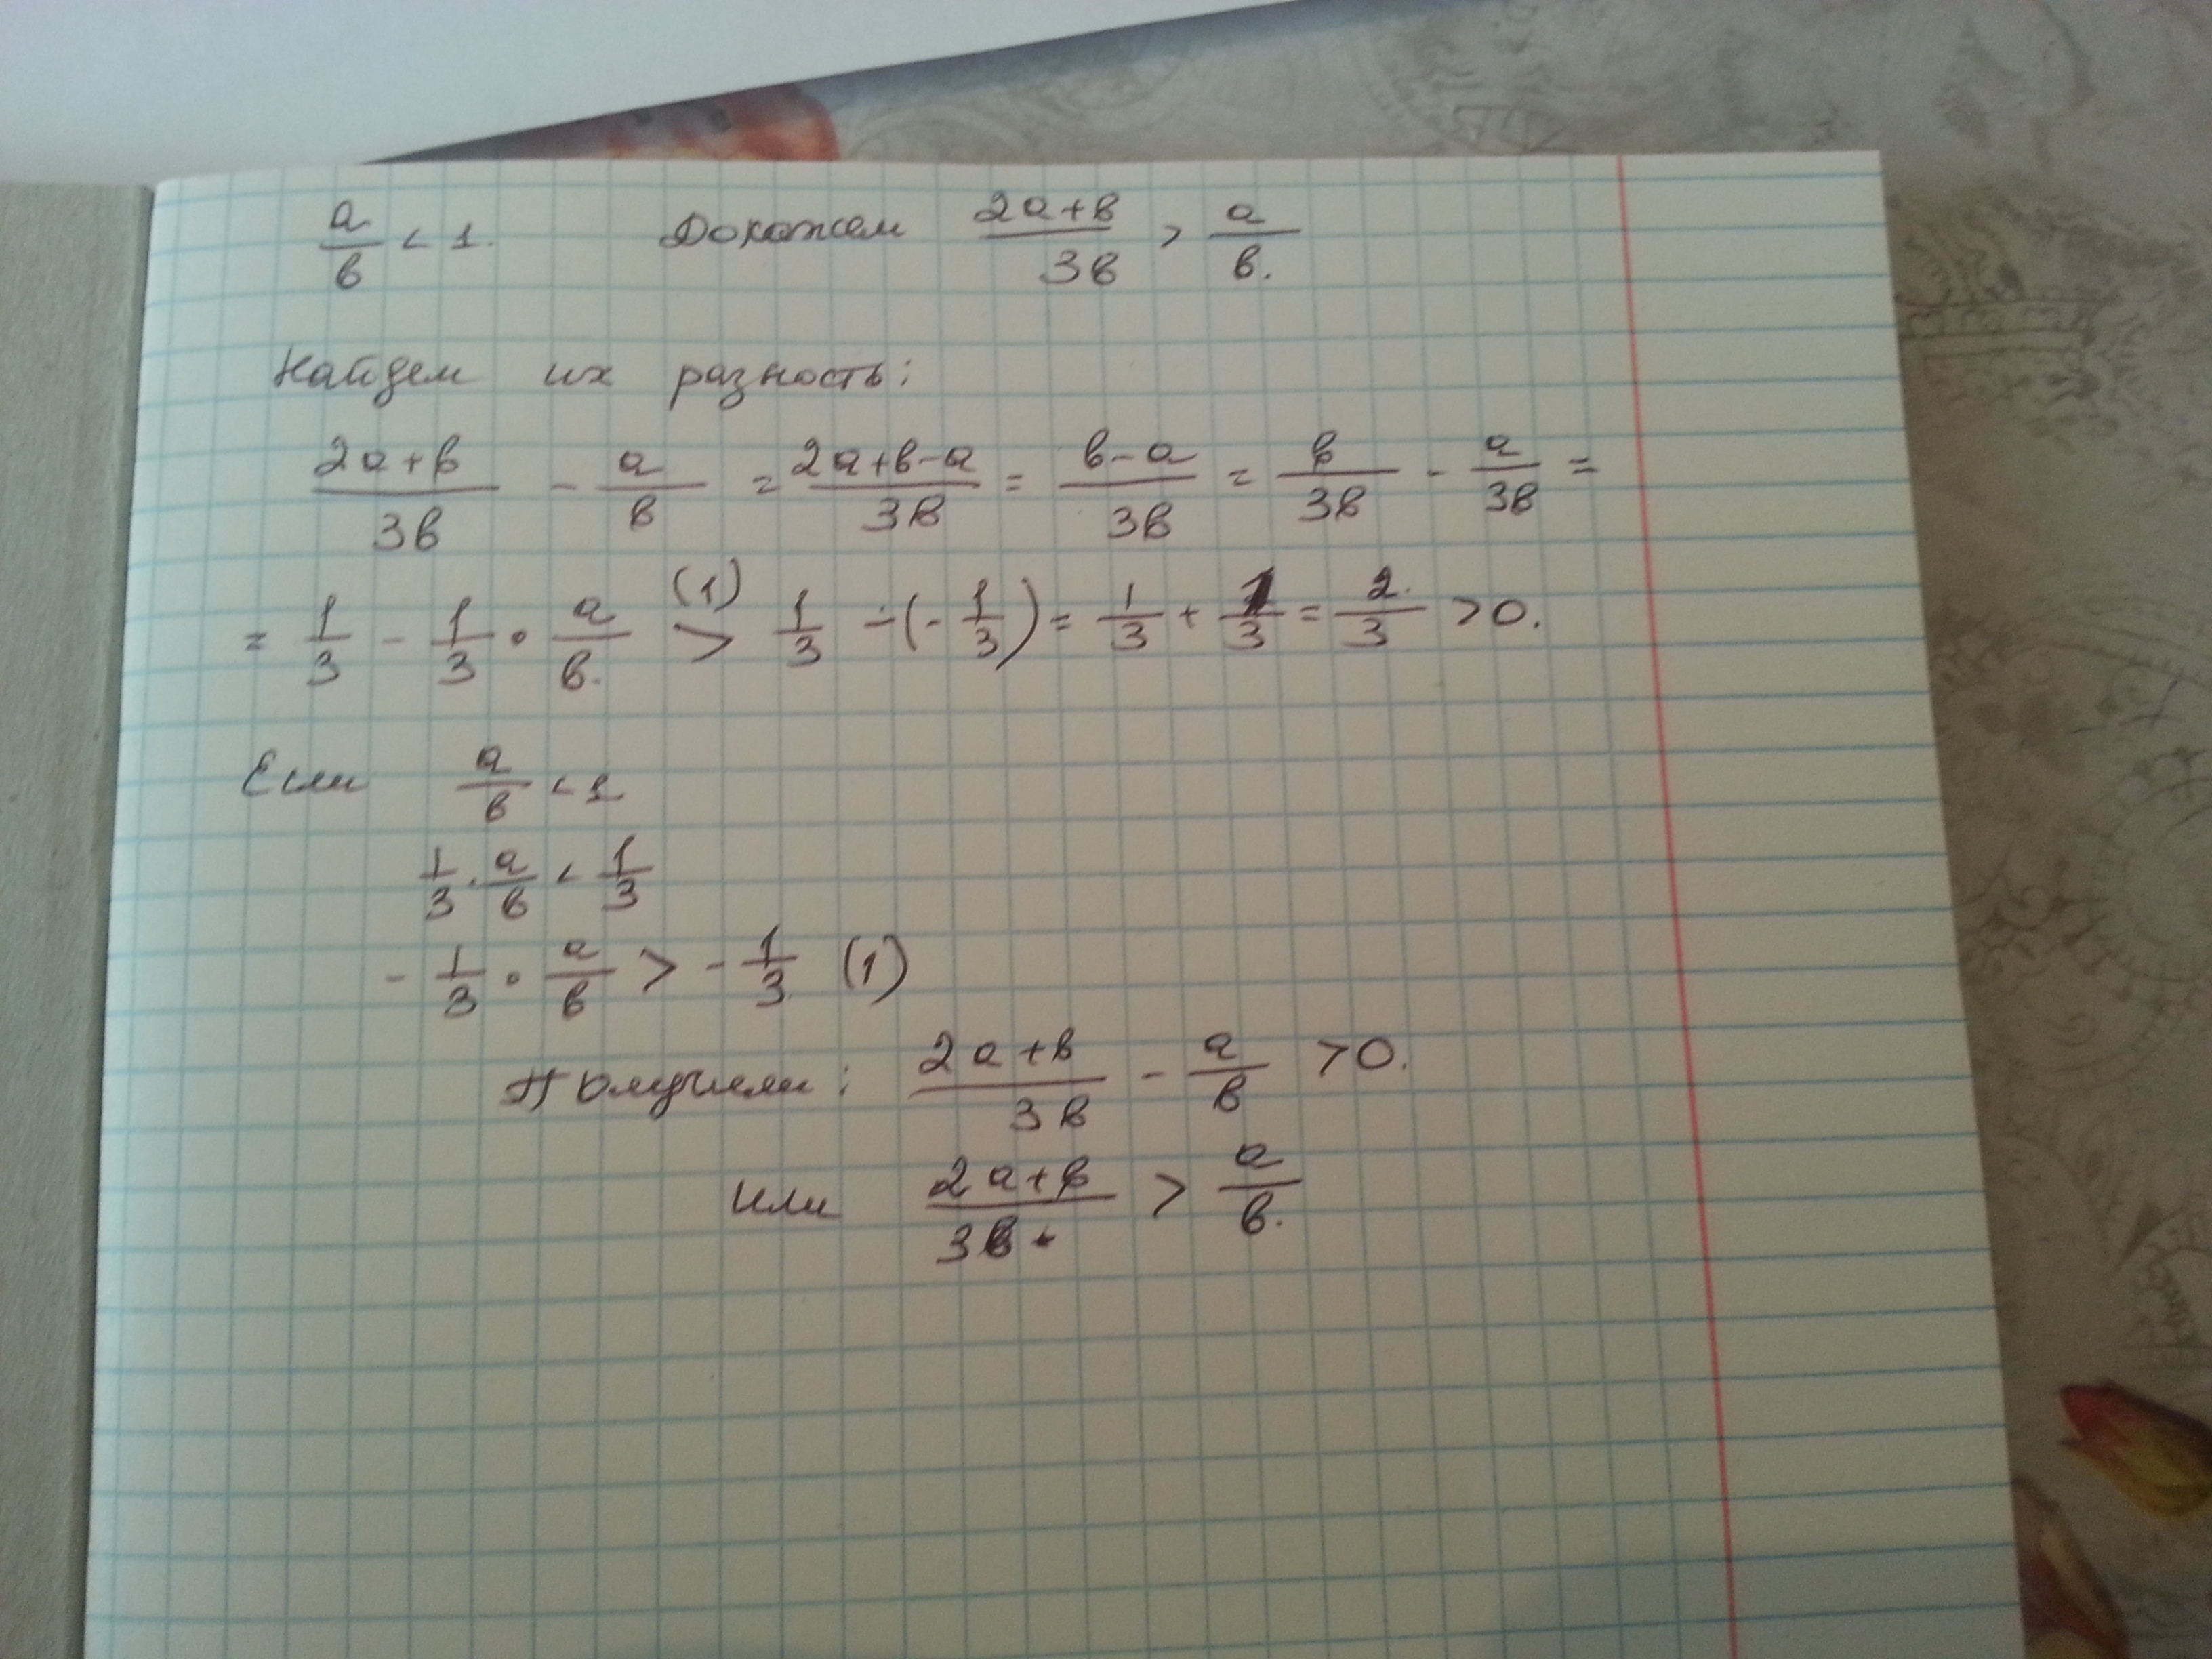 a/в < 1. Докажем (2a+в)/3в > a/в.
Найдем их разность:
(2a+в)/3в - a/в = (2a+в-a)/3в = (в-a)/3в = в/3в - a/3в =
= 1/3 - 1/3 · a/в. >(1) 1/3 - (-1/3) = 1/3 + 1/3 = 2/3 > 0.
Если a/в < 1
1/3 · a/в < 1/3
- 1/3 · a/в > - 1/3 (1)
Получили: (2a+в)/3в - a/в > 0.
Или (2a+в)/3в > a/в.